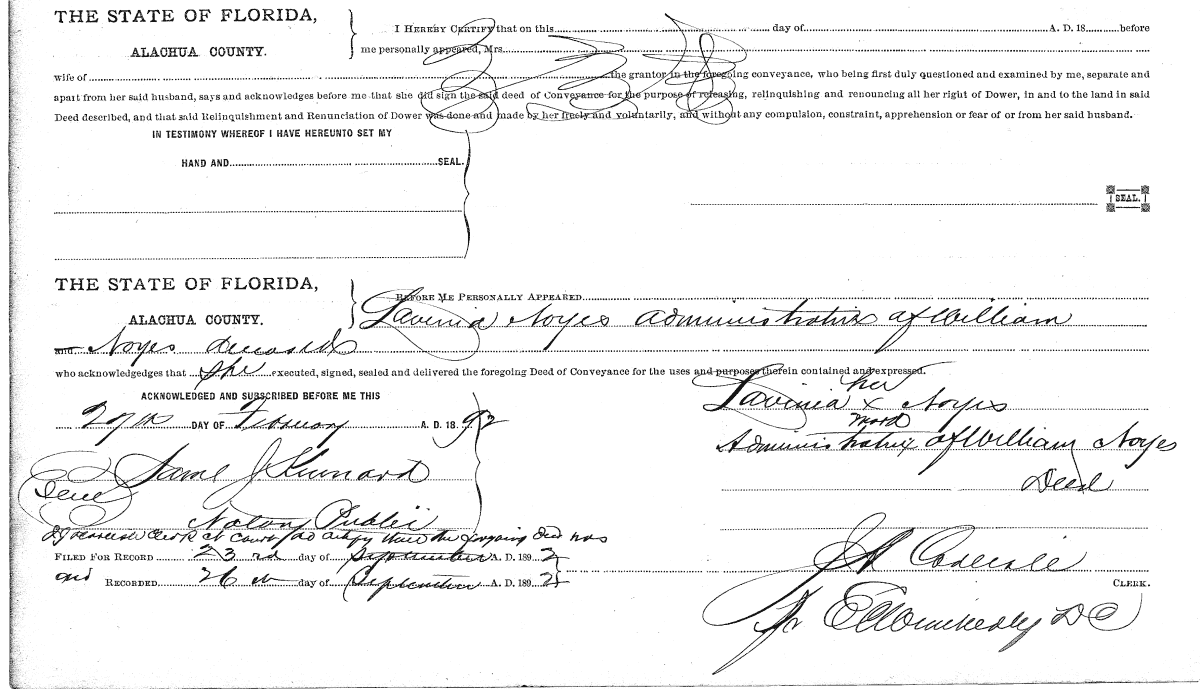 THE STATE OF FLORIDA,
ALACHUA COUNTY.
I HEREBY CERTIFY that on this day of A. D. 18 before
me personally appeared, Mrs.
wife of the grantor in the foregoing conveyance, who being first duly questioned and examined by me, separate and
apart from her said husband, says and acknowledges before me that she did sign the said deed of Conveyance for the purpose of releasing, relinquishing and renouncing all her right of Dower, in and to the land in said
Deed described, and that said Relinquishment and Renunciation of Dower was done and made by her freely and voluntarily, and without any compulsion, constraint, apprehension or fear of or from her said husband.
IN TESTIMONY WHEREOF I HAVE HEREUNTO SET MY
HAND AND SEAL.
SEAL.
THE STATE OF FLORIDA,
ALACHUA COUNTY.
BEFORE ME PERSONALLY APPEARED
Lavinia Noyes Administratrix of William
and Noyes Deceased
who acknowledgedges that She executed, signed, sealed and delivered the foregoing Deed of Conveyance for the uses and purposes therein contained and expressed.
ACKNOWLEDGED AND SUBSCRIBED BEFORE ME THIS
27th DAY OF February A. D. 18 92
her
Lavinia x Noyes
mark
Administratrix of William Noyes
Decd
J Kinnard
Seal
Notary Public
Clerk Ct Court do certify that the foregoing deed was
FILED FOR RECORD 23 rd day of September A. D. 189 2
and RECORDED 26 th day of September A. D. 189 2
CLERK.
D C